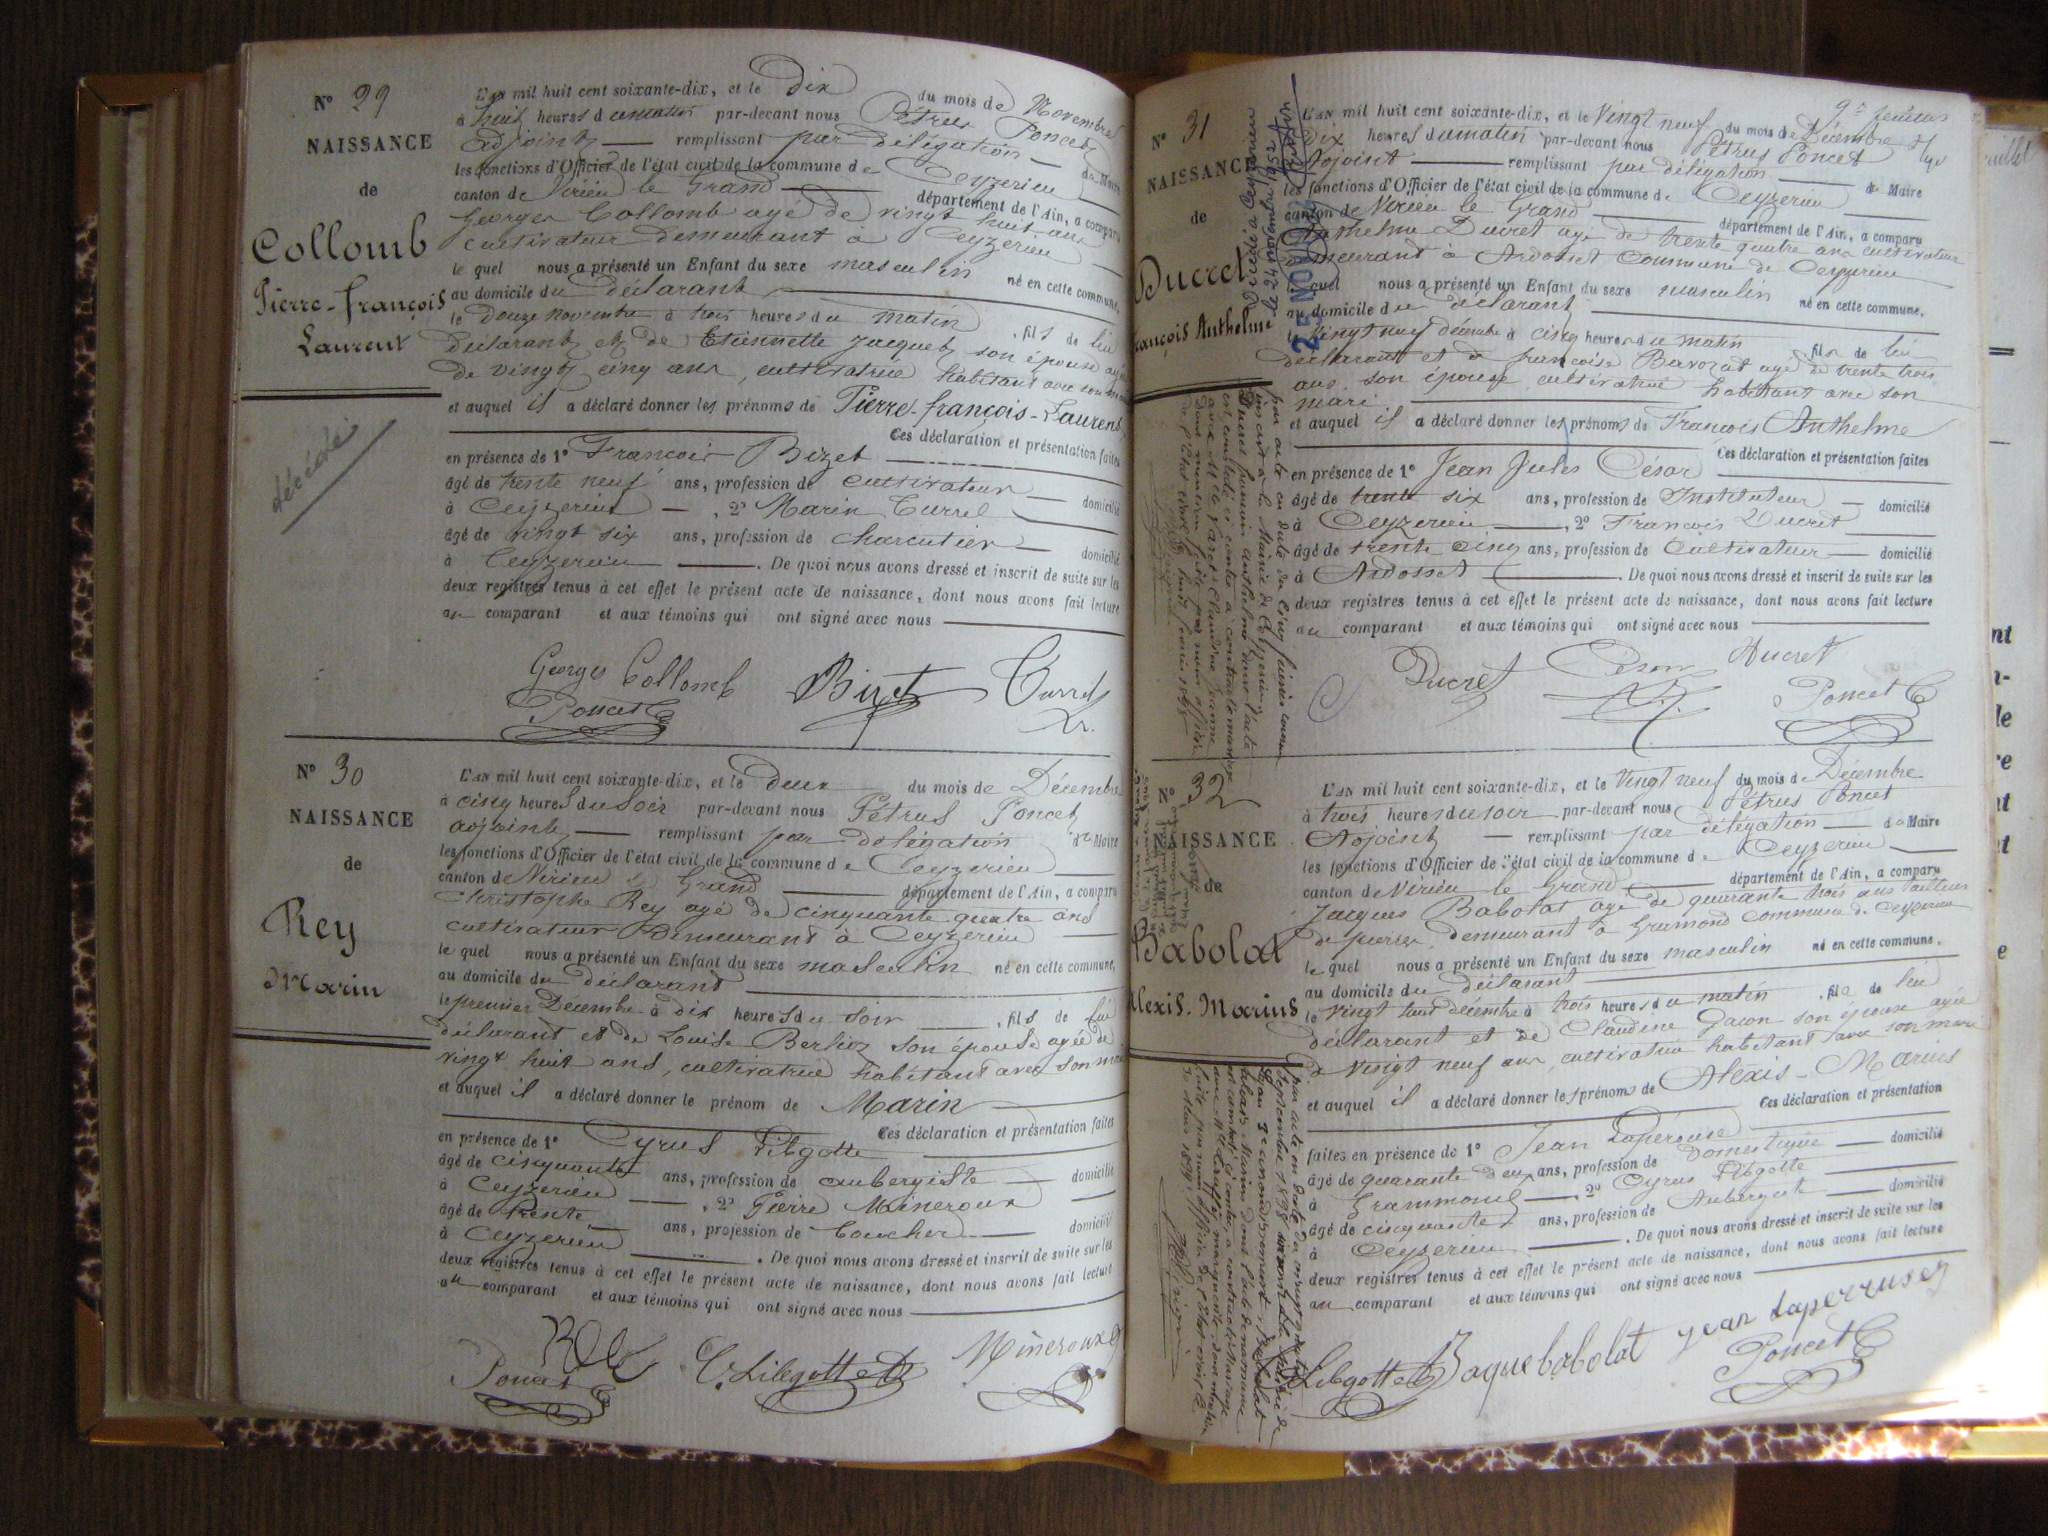 N° 29
NAISSANCE
de
Collomb
Pierre-françois
Laurent
décédé
L'AN mil huit cent soixante-dix, et le dix du mois de Novembre
à huit heures du matin par-devant nous Pétrus Poncet
adjoint remplissant par délégation du Maire
les fonctions d'Officier de l'état civil de la commune de Ceyzerieu
canton de Virieu le Grand département de l'Ain, a comparu
Georges Collomb agé de vingt huit ans
cultivateur demeurant à Ceyzerieu
le quel nous a présenté un Enfant du sexe masculin né en cette commune,
au domicile du déclarant
le douze novembre à trois heures du matin , fils de lui
déclarant et de Etiennette Jacquet son épouse agée
de vingt cinq ans, cultivatrice habitant avec son mari
et auquel il a déclaré donner les prénoms de Pierre-françois-Laurent
Ces déclaration et présentation faites
en présence de 1° François Bizet
âgé de trente neuf ans, profession de cultivateur domicilié
à Ceyzerieu , 2° Marin Turrel
âgé de vingt six ans, profession de charcutier domicilié
à Ceyzerieu . De quoi nous avons dressé et inscrit de suite sur les
deux registres tenus à cet effet le présent acte de naissance, dont nous avons fait lecture
au comparant et aux témoins qui ont signé avec nous
Georges Collomb Bizet Turrel
Poncet
N° 30
NAISSANCE
de
Rey
Marin
L'AN mil huit cent soixante-dix, et le deux du mois de Décembre
à cinq heures du soir par-devant nous Pétrus Poncet
adjoint remplissant par délégation du Maire
les fonctions d'Officier de l'état civil de la commune de Ceyzerieu
canton de Virieu le Grand département de l'Ain, a comparu
Christophe Rey agé de cinquante quatre ans
cultivateur demeurant à Ceyzerieu
le quel nous a présenté un Enfant du sexe masculin né en cette commune,
au domicile du déclarant
le premier Décembre à dix heures du soir , fils de lui
déclarant et de Louise Berlioz son épouse agée de
vingt huit ans, cultivatrice habitant avec son mari
et auquel il a déclaré donner le prénom de Marin
Ces déclaration et présentation faites
en présence de 1° Cyrus Libgotte
âgé de cinquante ans, profession de aubergiste domicilié
à Ceyzerieu , 2° Pierre Mineroux
âgé de trente ans, profession de boucher domicilié
à Ceyzerieu . De quoi nous avons dressé et inscrit de suite sur les
deux registres tenus à cet effet le présent acte de naissance, dont nous avons fait lecture
au comparant et aux témoins qui ont signé avec nous
Rey C. Libgotte Mineroux
Poncet
N° 31
NAISSANCE
de
Ducret
François Anthelme
Décédé à Ceyzerieu
le 24 novembre 1952
25 NOV 1952
L'AN mil huit cent soixante-dix, et le Vingt neuf du mois de Décembre
dix heures du matin par-devant nous Pétrus Poncet
Adjoint remplissant par délégation du Maire
les fonctions d'Officier de l'état civil de la commune de Ceyzerieu
canton de Virieu le Grand département de l'Ain, a comparu
Anthelme Ducret agé de trente quatre ans cultivateur
demeurant à Ardosset Commune de Ceyzerieu
le quel nous a présenté un Enfant du sexe masculin né en cette commune,
au domicile du déclarant
le Vingt neuf décembre à cinq heures du matin , fils de lui
déclarant et de françoise Bavozat agé de trente trois
ans son épouse cultivatrice habitant avec son
mari
et auquel il a déclaré donner les prénoms de François Anthelme
Ces déclaration et présentation faites
en présence de 1° Jean Jules César
âgé de trente six ans, profession de Instituteur domicilié
à Ceyzerieu , 2° François Ducret
âgé de trente cinq ans, profession de Cultivateur domicilié
à Ardosset . De quoi nous avons dressé et inscrit de suite sur les
deux registres tenus à cet effet le présent acte de naissance, dont nous avons fait lecture
au comparant et aux témoins qui ont signé avec nous
Ducret César Ducret
Poncet
N° 32
NAISSANCE
de
Babolat
Alexis-Marius
L'AN mil huit cent soixante-dix, et le Vingt neuf du mois de Décembre
à trois heures du soir par-devant nous Pétrus Poncet
Adjoint remplissant par délégation du Maire
les fonctions d'Officier de l'état civil de la commune de Ceyzerieu
canton de Virieu le Grand département de l'Ain, a comparu
Jacques Babolat agé de quarante trois ans tailleur
de pierre, demeurant à Grammond Commune de Ceyzerieu
le quel nous a présenté un Enfant du sexe masculin né en cette commune,
au domicile du déclarant
le vingt huit décembre à trois heures du matin , fils de lui
déclarant et de Claudine Jacon son épouse agée
de Vingt neuf ans, cultivatrice habitant avec son mari
et auquel il a déclaré donner les prénoms de Alexis-Marius
Ces déclaration et présentation
faites en présence de 1° Jean Laperouse
âgé de quarante deux ans, profession de Domestique domicilié
à Grammond , 2° Cyrus Libgotte
âgé de cinquante ans, profession de Aubergiste domicilié
à Ceyzerieu . De quoi nous avons dressé et inscrit de suite sur les
deux registres tenus à cet effet le présent acte de naissance, dont nous avons fait lecture
au comparant et aux témoins qui ont signé avec nous
Libgotte Jaque babolat Jean Laperruse
Poncet